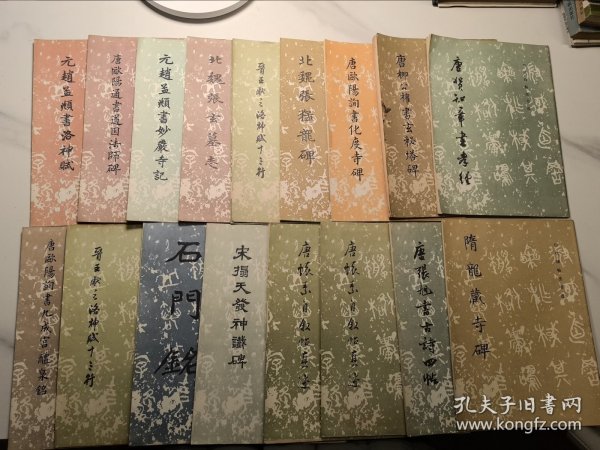 元趙孟頫書洛神賦
唐歐陽通書道因法師碑
元趙孟頫書妙嚴寺記
北魏張玄墓志
晉王獻之洛神賦十三行
北魏張猛龍碑
唐歐陽詢書化度寺碑
唐柳公權書玄秘塔碑
唐賀知章書孝經
唐歐陽詢書九成宮醴泉銘
晉王獻之洛神賦十三行
石門銘
宋搨天發神讖碑
唐懷素自敘帖真跡
唐懷素自敘帖真跡
唐張旭書古詩四帖
隋龍藏寺碑
孔夫子旧书网
www.kongfz.com